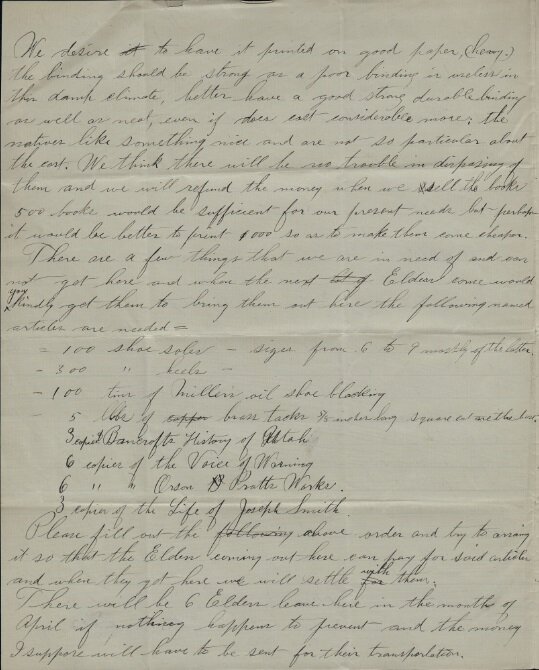 We desire it to have it printed on good paper, (heavy.)
the binding should be strong as a poor binding is useless in
this damp climate, better have a good strong durable binding
as well as neat, even if does cost considerable more; the
natives like something nice and are not so particular about
the cost. We think there will be no trouble in disposing of
them and we will refund the money when we sell the books
500 books would be sufficient for our present needs but perhaps
it would be better to print 1000 so as to make them come cheaper.
There are a few things that we are in need of and can
not get here and when the next lot of Elders come would
you
kindly get them to bring them out here the following named
articles are needed =
= 100 shoe soles - sizes from 6 to 9 mostly of the latter.
- 300 " heels -
- 100 tins of Millers oil shoe blacking
5 lbs of copper brass tacks 5/8 inches long square cut are the best.
3 copies Bancrofts History of Utah
6 copies of the Voice of Warning
6 " " Orson Pratts Works.
3 copies of the Life of Joseph Smith.
Please fill out the following above order and try to arrang
it so that the Elders coming out here can pay for said articles
and when they get here we will settle for with them.
There will be 6 Elders leave here in the months of
April if nothing happens to prevent and the money
I suppose will have to be sent for their transportation.